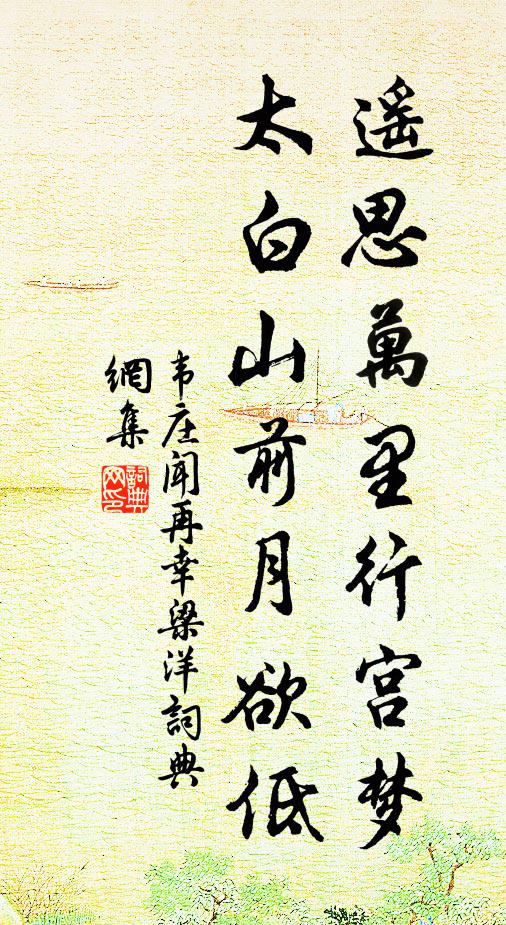 遥思萬里行宫梦
太白山前月欲低
韦庄闻再幸梁洋詞典
網集
詞典